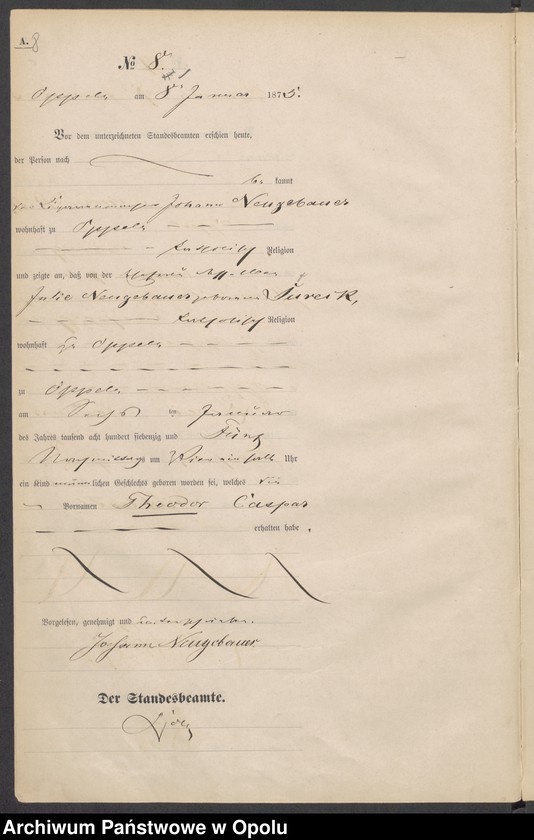 A. 8
No 8.
Oppeln am 8 Januar 1875.
Vor dem unterzeichneten Standesbeamten erschien heute,
der Person nach
be kannt
Johann Neugebauer
wohnhaft zu Oppeln
katholischer Religion
und zeigte an, daß von der
Julie Neugebauer, geborenen Jureck,
katholischer Religion
wohnhaft zu Oppeln
zu Oppeln
am Sechsten Januar
des Jahres tausend acht hundert siebenzig und Fünf
Nachmittags um Vier ein halb Uhr
ein Kind männlichen Geschlechts geboren worden sei, welches die
Vornamen Theodor Caspar
erhalten habe.
Vorgelesen, genehmigt und unterschrieben.
Johann Neugebauer
Der Standesbeamte.
Archiwum Państwowe w Opolu